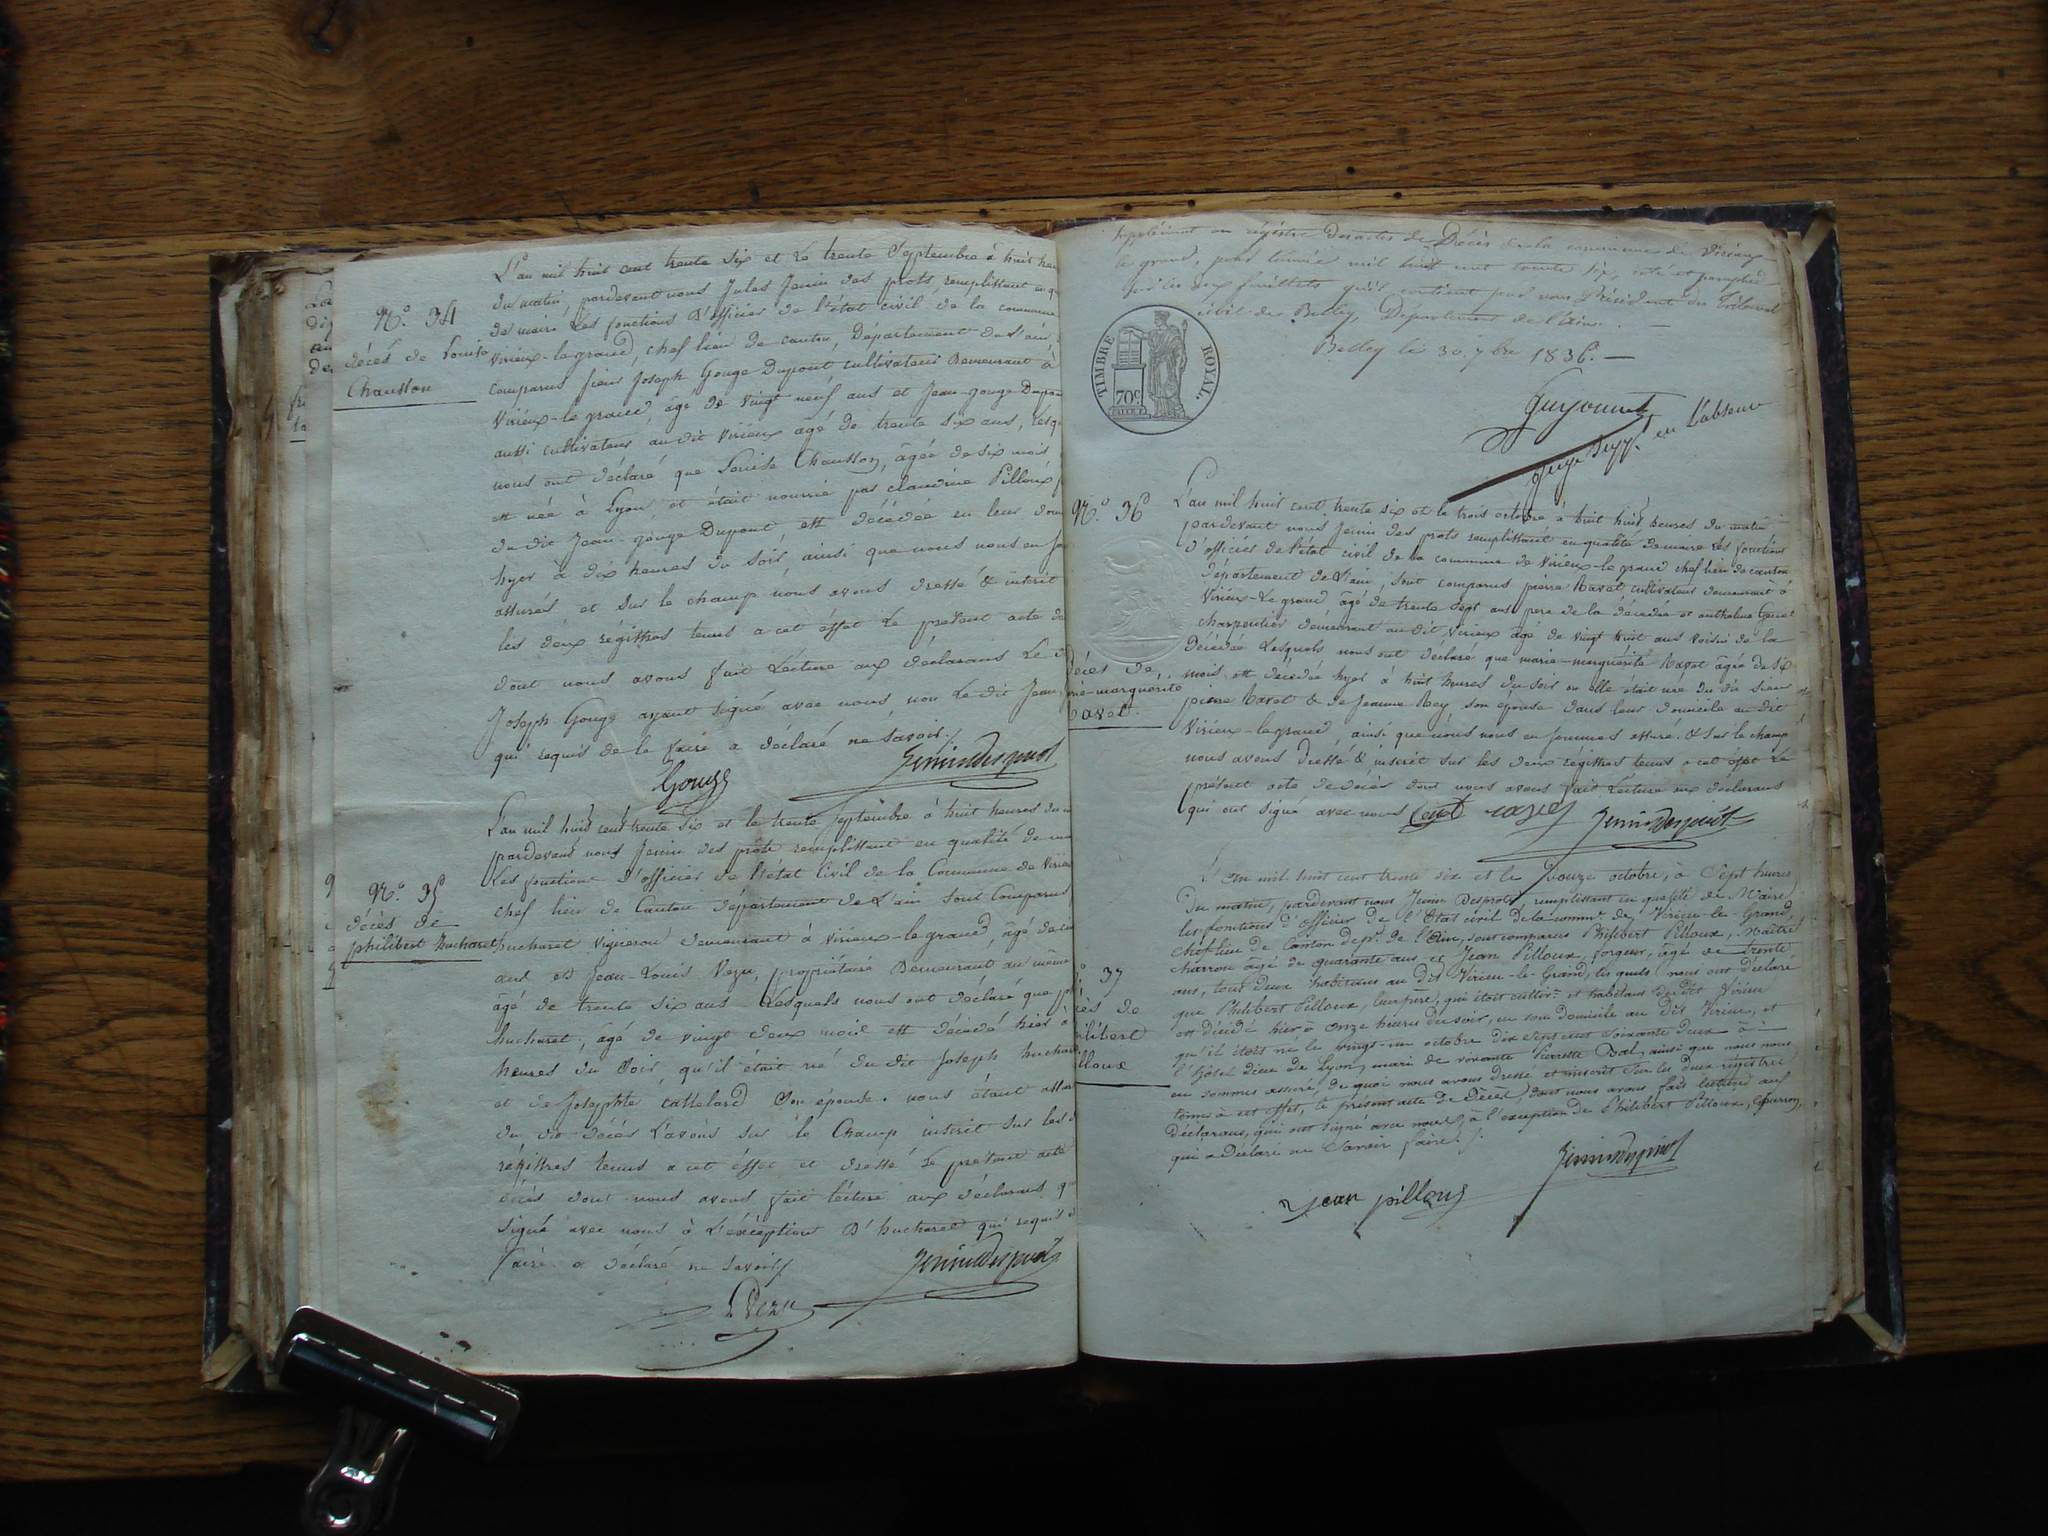 N.º 34
décès de Louise
Chausson
L'an mil huit cent trente six et le trente Septembre à huit
du matin, pardevant nous Jules Jenin des prots, remplissant en
de maire les fonctions d'officier de l'état civil de la commune
Virieux-le-grand, chef lieu de canton, Département de l'ain,
comparus sieur Joseph Gouge Dupont cultivateur Demeurant à
Virieux-le-grand, âgé de vingt neuf ans et Jean gouge Dupon
aussi cultivateur au dit Virieux âgé de trente six ans,
nous ont déclaré que Louise Chausson, âgée de six mois
née à Lyon, et était nourrie par claudine Pilloux
du dit Jean gouge Dupont est décédée en leur dom
hyer à dix heures du soir, ainsi que nous nous en
assurés et sur le champ nous avons dressé & inscrit
les deux régistres tenus a cet éffet le présent acte de
dont nous avons fait lecture aux déclarans le
Joseph Gouge ayant signé avec nous, non le dit Jean
qui requis de le faire a déclaré ne savoir.
Gouge Jenindesprot
N.º 35
décès de
philibert hucharet
L'an mil huit cent trente six et le trente septembre à huit heures du
pardevant nous Jenin des prots remplissant en qualité de
Les fonctions d'officier de l'état Civil de la Commune de Virieu
chef lieu de Canton département de L'ain Sont Comparus
hucharet vigneron demeurant à Virieux-le-grand, âgé de
ans et Jean-Louis Vezu, propriétaire Demeurant au même
âgé de trente six ans Lesquels nous ont déclaré que
hucharet, âgé de vingt deux mois est décédé hier à
heures du soir, qu'il était né du dit Joseph huchar
et de Josephte cattelard son épouse. nous étant
du dit décès l'avons sur le Champ inscrit sur les
régistres tenus a cet éffet et dréssé le présent acte
décès dont nous avons fait lecture aux déclarans
signé avec nous à l'exception d'hucharet qui requis
faire a déclaré ne Savoir
Jenindesprot
Vezu
Supplément au régistre des actes de Décès de la commune de Virieux
le grand, pour l'année mil huit cent trente six, coté et paraphé
sur les deux feuillets qu'il contient par nous Président du Tribunal
civil de Belley, Département de l'Ain.
Belley le 30. 7bre 1836.
TIMBRE ROYAL.
70c
Guyonnet
juge supp.t en l'absence
N.º 36
L'an mil huit cent trente six et le trois octobre à huit heures du matin
pardevant nous Jenin des prots remplissant en qualité de maire les fonctions
d'officier de l'état civil de la commune de Virieux-le grand chef lieu de canton
département de L'ain, sont comparus pierre Ravet cultivateur demeurant à
Virieux-Le grand âgé de trente sept ans pere de la décédée et anthelme
charpentier demeurant au dit Virieux âgé de vingt huit ans voisin de la
décès de
marguerite
avet
Décédée Lesquels nous ont déclaré que marie-marguérite Ravet âgée de six
mois est décédée hyer à huit heures du soir ou elle était née du dit sieur
pierre Ravet & de Jeanne Rey son épouse dans leur domicile au dit
Virieux-legrand, ainsi que nous nous en sommes assuré. & sur le champ
nous avons dressé & inscrit sur les deux régistres tenus a cet éffet le
présent acte de décès dont nous avons fait lecture aux déclarans
qui ont signé avec nous
Jenindesprot
37
de
ilibert
lloux
L'an mil huit cent trente six et le douze octobre, à Sept heures
Du matin, pardevant nous Jenin Desprots, remplissant en qualité de Maire
les fonctions d'officier de l'Etat civil de la comm.e de Virieu-le-Grand,
Chef-lieu de Canton dep.t de l'Ain, sont comparus Philibert Pilloux, Maître
charron âgé de quarante ans et Jean Pilloux, forgeur, âgé de trente
ans, tous deux habitans au dit Virieu-le-Grand, les quels nous ont déclaré
que Philibert Pilloux, leur père, qui étoit cultiv.r et habitant du dit Virieu
est décédé hier à onze heures du soir, en son domicile au dit Virieu, et
qu'il étoit né le vingt-un octobre dix sept cent soixante deux à
l'Hôtel dieu de Lyon, mari de vivante Pierrette ainsi que nous nous
en sommes assuré, de quoi nous avons dressé et inscrit sur les deux registres
tenus à cet effet, le présent acte de Décès, dont nous avons fait lecture aux
déclarans, qui ont signé avec nous, à l'exception de Philibert Pilloux, Charron,
qui a déclaré ne Savoir faire.
Jenindesprot
Jean pilloux